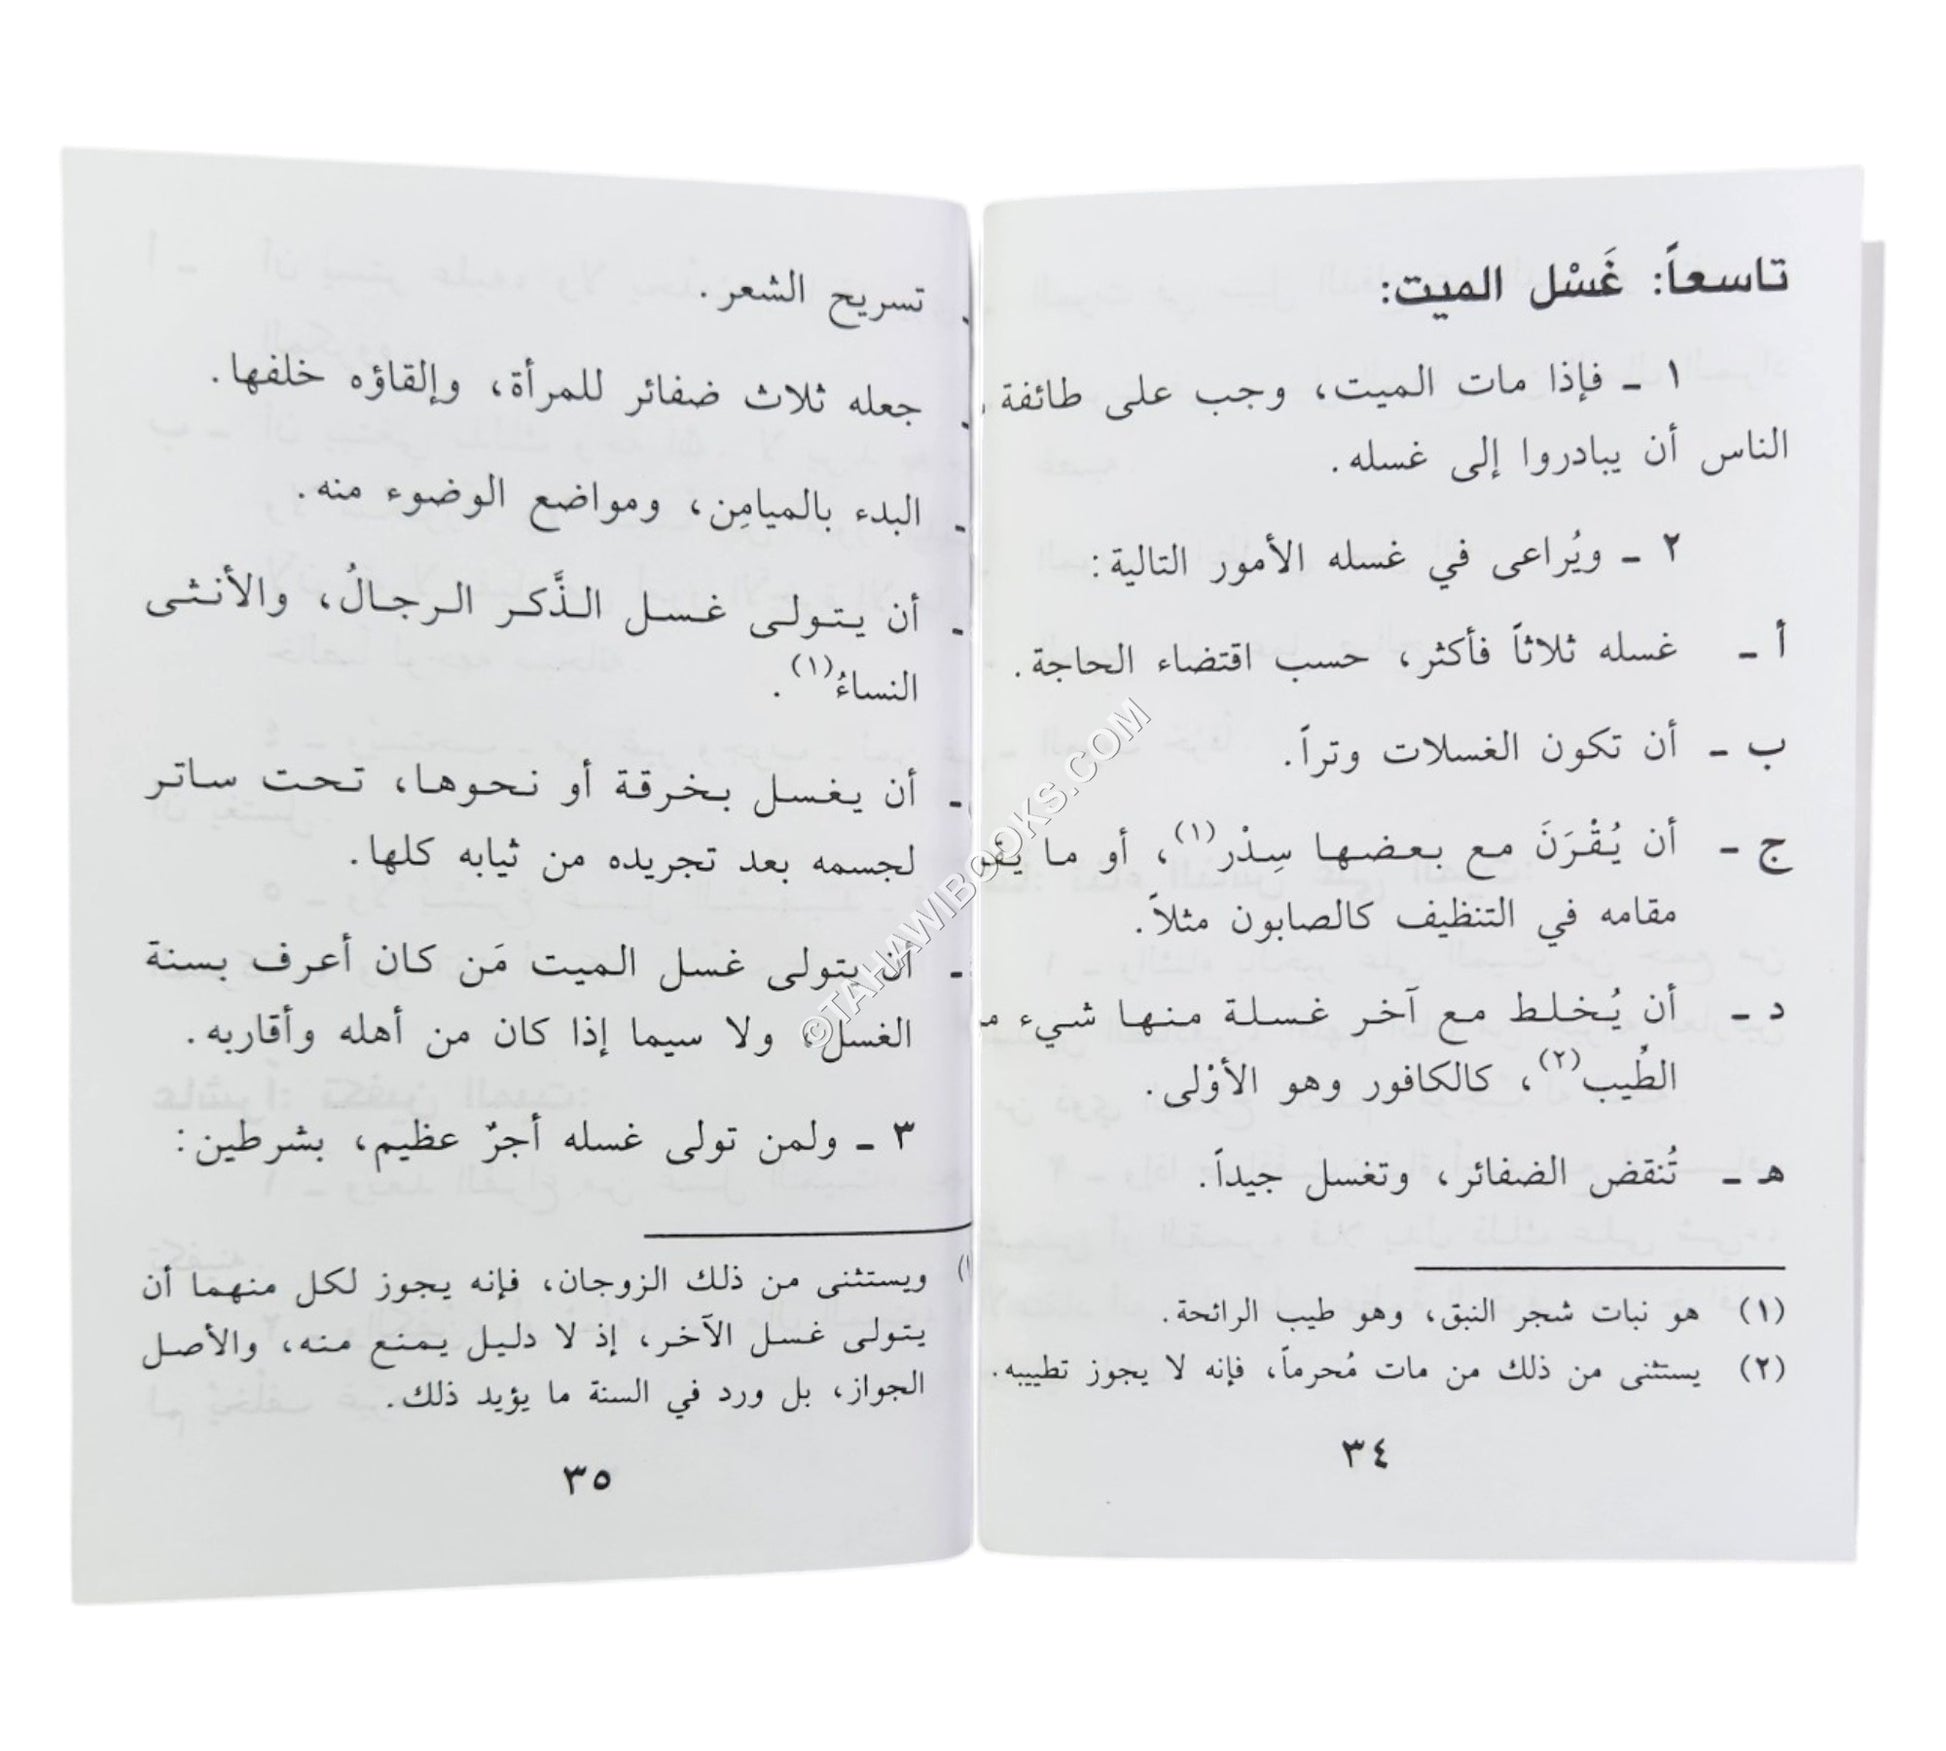 تاسعاً: غَسْل الميت:
١ ـ فإذا مات الميت، وجب على طائفة
الناس أن يبادروا إلى غسله.
٢ ـ ويُراعى في غسله الأمور التالية:
أ ـ غسله ثلاثاً فأكثر، حسب اقتضاء الحاجة.
ب ـ أن تكون الغسلات وتراً.
ج ـ أن يُقْرَنَ مع بعضها سِدْر(١)، أو ما
مقامه في التنظيف كالصابون مثلاً.
د ـ أن يُخلط مع آخر غسلة منها شيء
الطُيب(٢)، كالكافور وهو الأوْلى.
هـ ـ تُنقض الضفائر، وتغسل جيداً.
(١) هو نبات شجر النبق، وهو طيب الرائحة.
(٢) يستثنى من ذلك من مات مُحرماً، فإنه لا يجوز تطييبه.
٣٤
ـ تسريح الشعر.
ـ جعله ثلاث ضفائر للمرأة، وإلقاؤه خلفها.
ـ البدء بالميامِن، ومواضع الوضوء منه.
ـ أن يتولى غسل الذَّكر الرجالُ، والأنثى
النساءُ(١).
ـ أن يغسل بخرقة أو نحوها، تحت ساتر
لجسمه بعد تجريده من ثيابه كلها.
ـ أن يتولى غسل الميت مَن كان أعرف بسنة
الغسل، ولا سيما إذا كان من أهله وأقاربه.
٣ ـ ولمن تولى غسله أجرٌ عظيم، بشرطين:
ويستثنى من ذلك الزوجان، فإنه يجوز لكل منهما أن
يتولى غسل الآخر، إذ لا دليل يمنع منه، والأصل
الجواز، بل ورد في السنة ما يؤيد ذلك.
٣٥
©TAHAWIBOOKS.COM